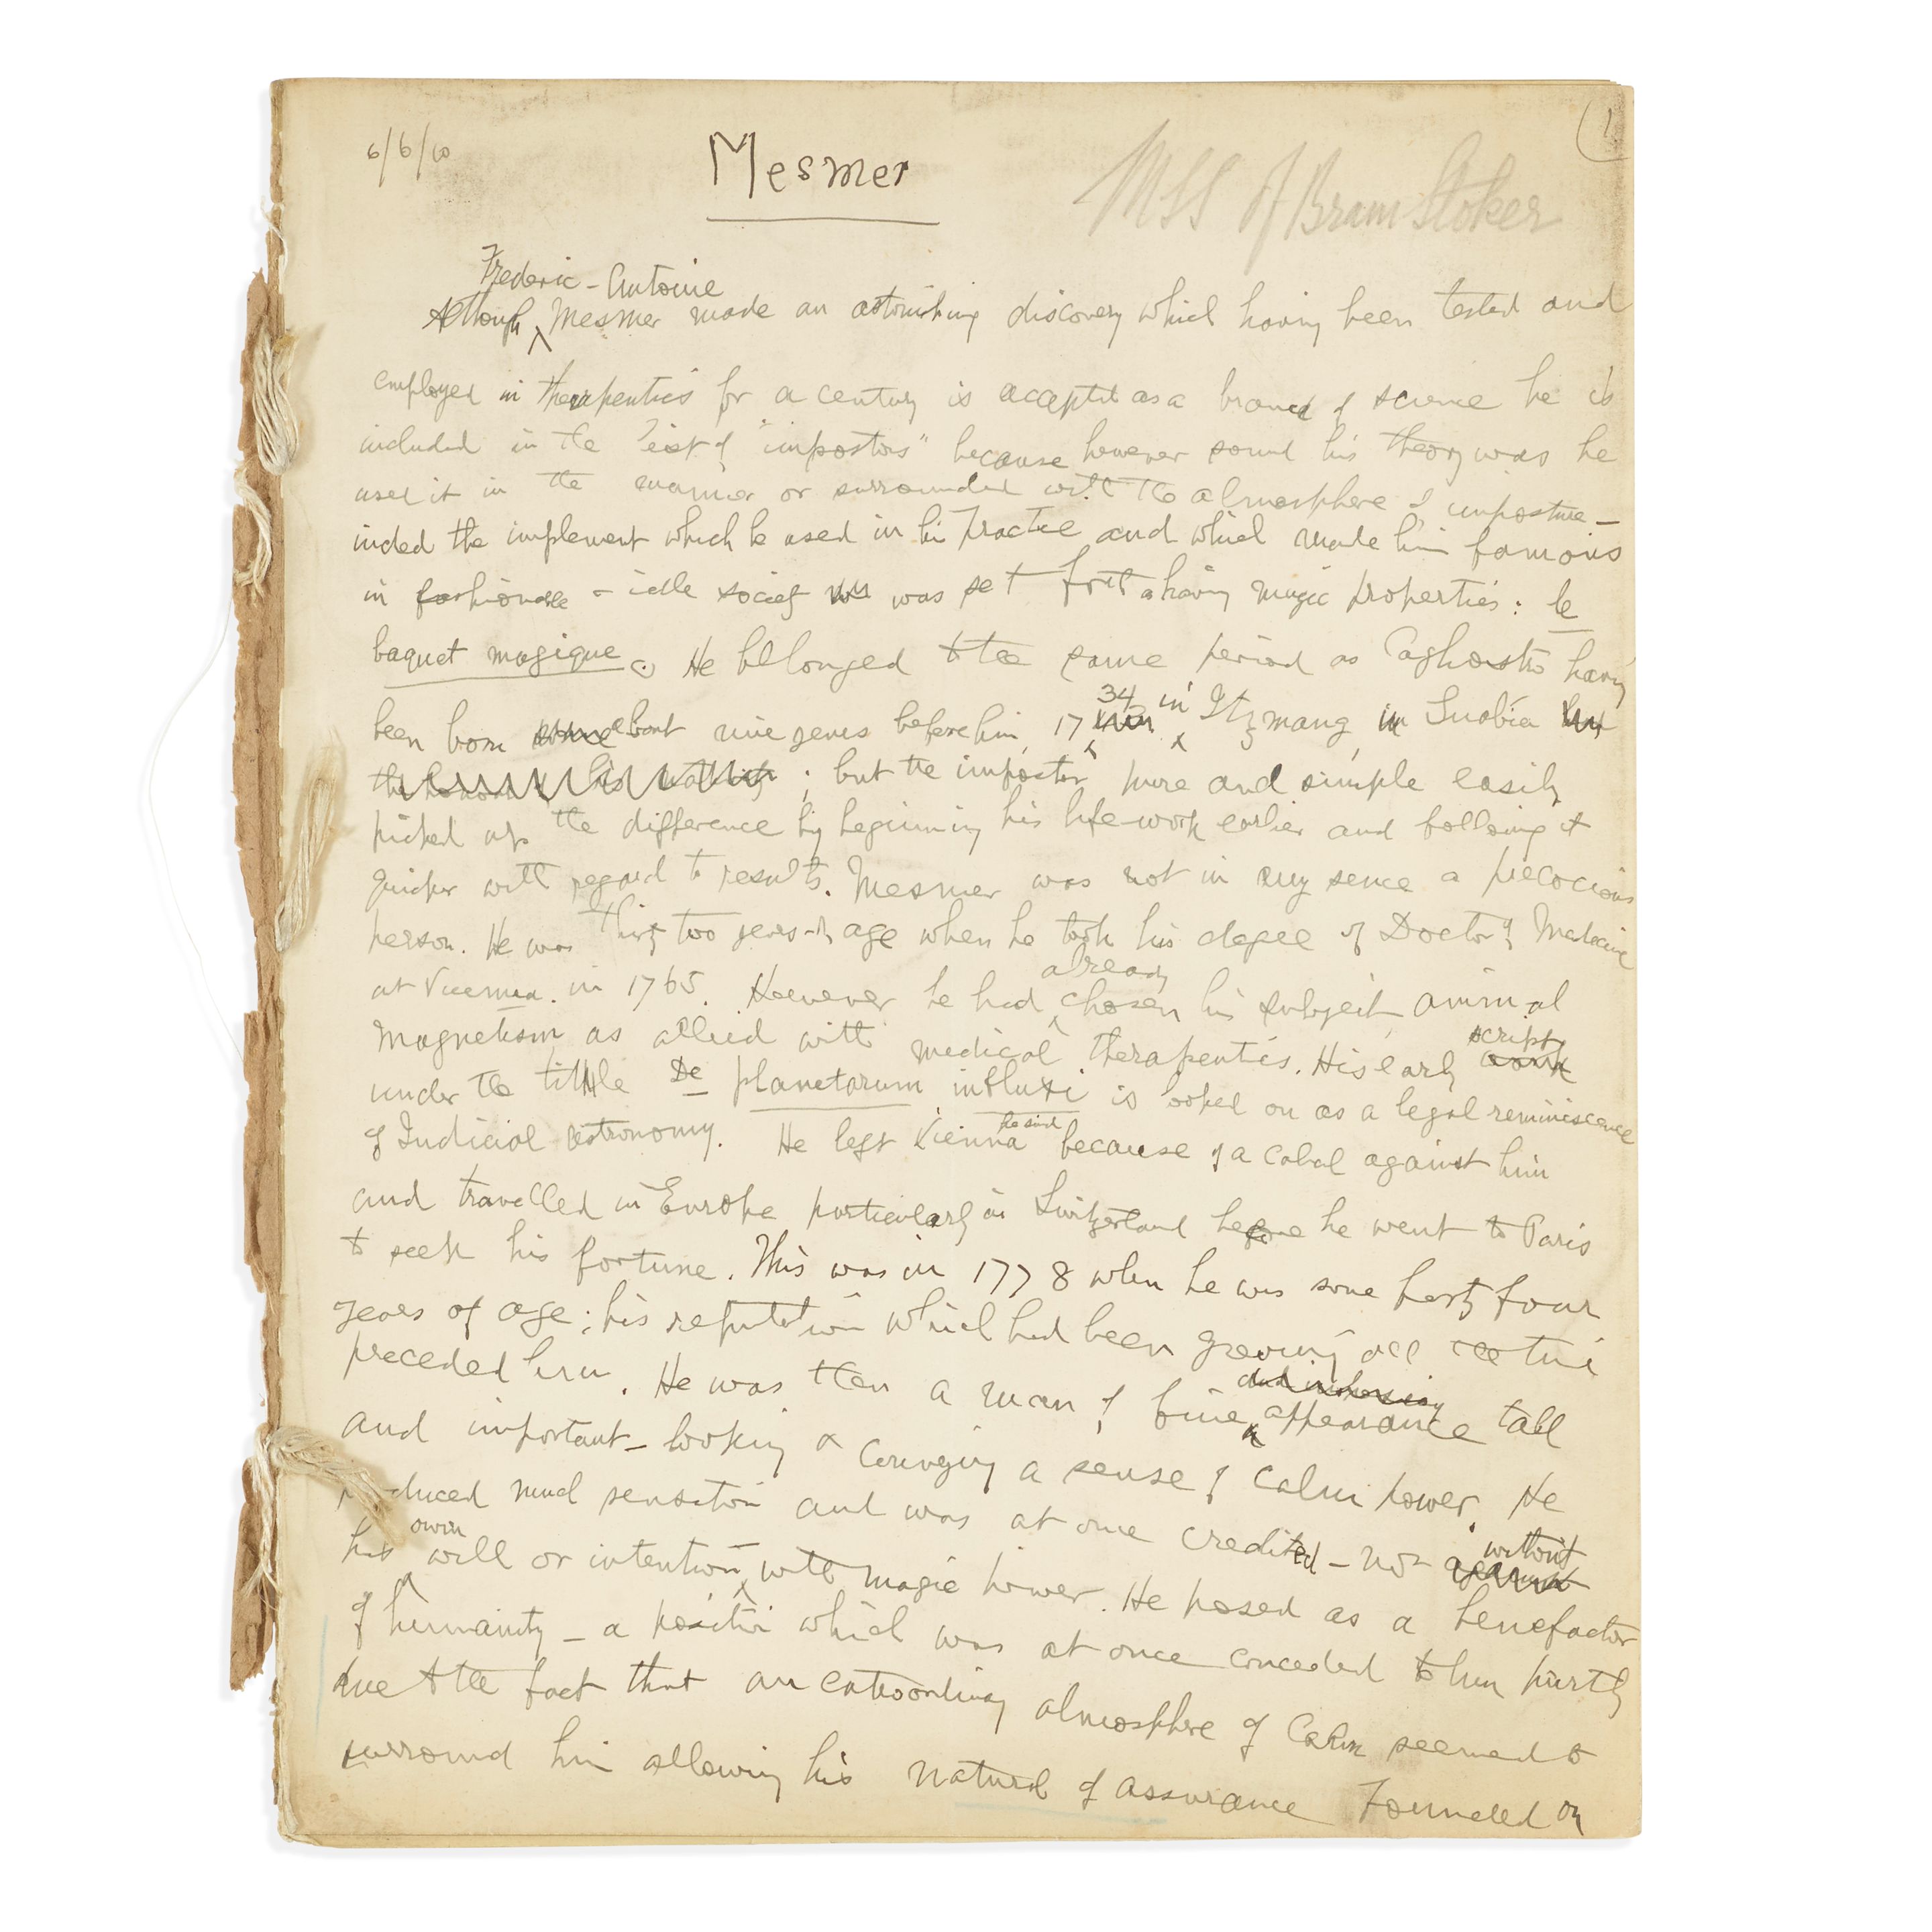 6/6/10
Mesmer
MSS of Bram Stoker
1
Frederic-Antoine
Although Mesmer made an astonishing discovery which having been tested and
employed in therapeutics for a century is accepted as a branch of science he is
included in the list of "impostors" because however sound his theory was he
used it in the manner or surrounded with the atmosphere of imposture –
inded the implement which he used in his practice and which made him famous
in fashionable – idle society was set forth as having magic properties: le
baquet magique. He belonged to the same period as Cagliostro having
been born about nine years before him, 1734 in Itzmang, in Suabia
; but the impostor pure and simple easily
picked up the difference by beginning his life-work earlier and following it
quicker with regard to results. Mesmer was not in any sence a precocious
person. He was thirty two years of age when he took his degree of Doctor of Medecine
at Vienna. in 1765. However he had already chosen his subject, animal
magnetism as allied with medical therapeutics. His early script
under the tittle De planetarum influxi is looked on as a legal reminiscence
of Judicial astronomy. He left Vienna he said because of a cabal against him
and travelled in Europe particularly in Switzerland before he went to Paris
to seek his fortune. This was in 1778 when he was some forty four
years of age; his reputation which had been growing all the time
preceded him. He was then a man of fine appearance tall
and important-looking & conveying a sense of calm power. He
produced much sensation and was at once credited – not without
his own will or intention, with magic power. He posed as a benefactor
of humanity – a position which was at once conceded to him partly
due to the fact that an extraordinary atmosphere of Calm seemed to
surround him allowing his natural of assurance Founded on